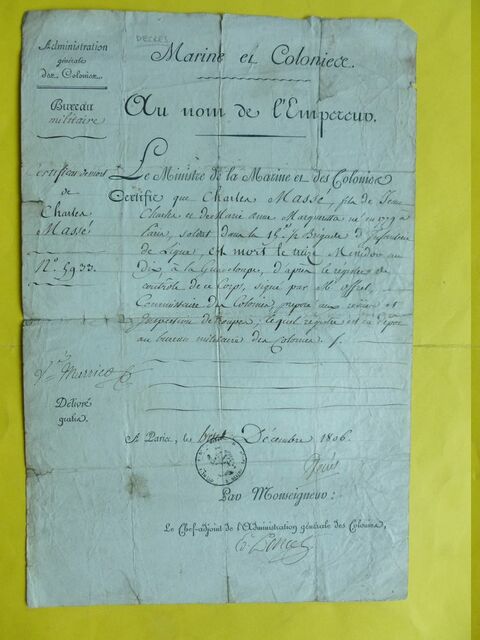 DECRES
Administration
générale
des Colonies.
Marine et Colonies.
Bureau
militaire
Au nom de l'Empereur.
Certificat de mort
de
Charles
Massé
N.° 5933.
Le Ministre de la Marine et des Colonies
Certifie que Charles Massé, fils de Jean
Charles et de Marie Anne né en 1779 à
Paris, soldat dans la 15.e 1/2 Brigade d'Infanterie
de Ligne, est mort le Messidor an
dix, à la Guadeloupe, d'après le registre de
contrôle de ce Corps, signé par M.
Commissaire des Colonies, aux revues et
Inspection de troupes; lequel registre est en dépôt
au bureau militaire des Colonies. /.
Délivré
gratis.
A Paris, le Décembre 1806.
Par Monseigneur:
Le Chef-adjoint de l'Administration générale des Colonies,